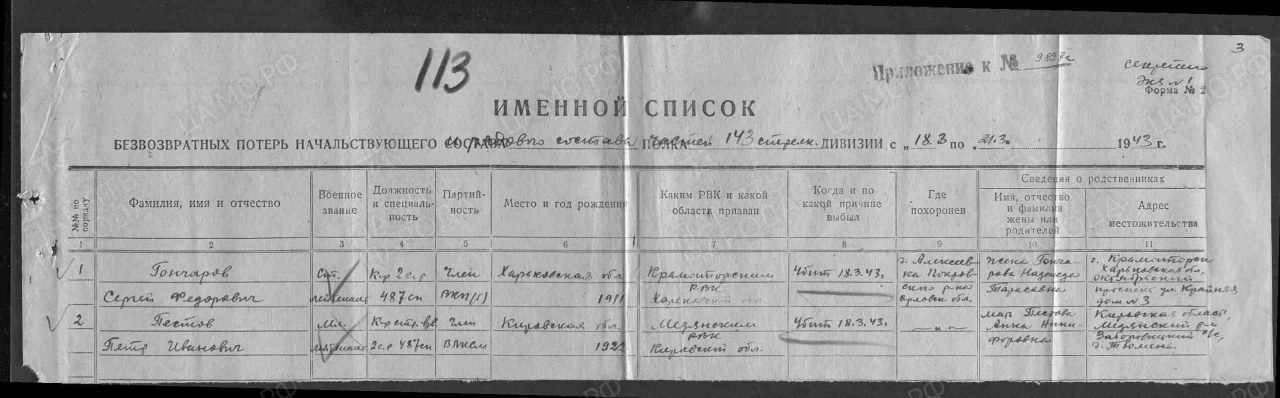 3
113
Приложение к №
секретно
Экз № 1
Форма № 2
ИМЕННОЙ СПИСОК
БЕЗВОЗВРАТНЫХ ПОТЕРЬ НАЧАЛЬСТВУЮЩЕГО и рядового состава частей 143 стрелк. ДИВИЗИИ с „ 18.3 по „ 21.3. 1943 г.
№№ по порядку
Фамилия, имя и отчество
Военное звание
Должность и специальность
Партийность
Место и год рождения
Каким РВК и какой области призван
Когда и по какой причине выбыл
Где похоронен
Сведения о родственниках
Имя, отчество и фамилия жены или родителей
Адрес местожительства
1 2 3 4 5 6 7 8 9 10 11
1 Гончаров Сергей Федорович
Ст. лейтенант
К-р 2 с.р 487 сп
Член ВКП(б)
Харьковская обл 1911
Краматорским РВК Харьковской обл.
Убит 18.3.43г.
д. Алексеевка Покровского р-на Орловск обл.
Жена Гончарова Надежда Тарасовна
г. Краматорск Харьковская обл, Октябрьский проспект ул Крайняя дом № 3
2 Пестов Петр Иванович
Мл. лейтенант
К-р стр. вв. 2 с.р 487 сп
Член ВЛКСМ
Кировская обл 1922
Медянским РВК Кировской обл.
Убит 18.3.43г
—„—
Мать Пестова Анна Никифоровна
Кировская область, Медянский р-н с/с, д. Тюмень.
ЦАМО.РФ